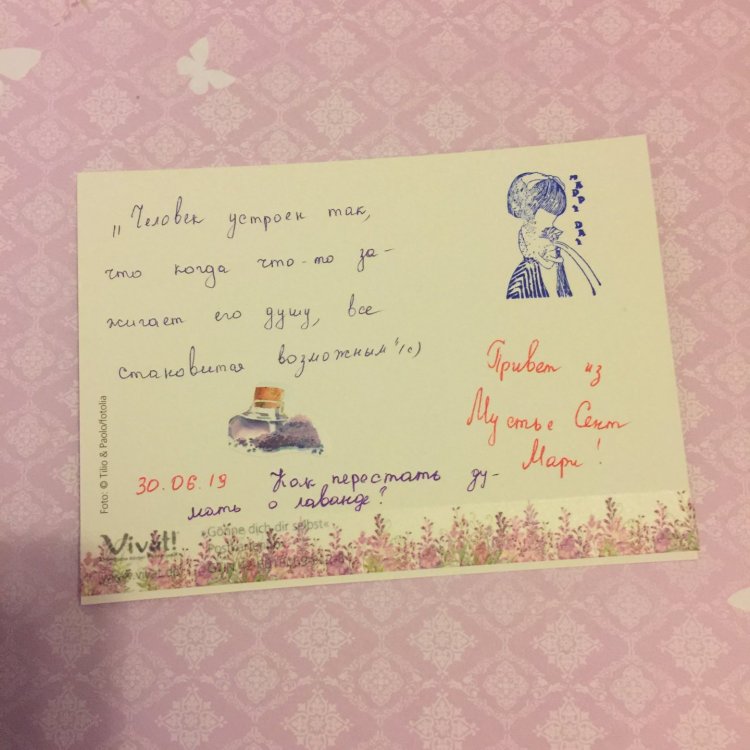 „Человек устроен так,
что когда что-то за-
жигает его душу, все
становится возможным"(с)
HAPPY DAY
Привет из
Мустье Сент
Мари!
30.06.19 Как перестать ду-
мать о лаванде?
Foto: © Tilio & Paolo/fotolia
Vivat!
»Gönne dich dir selbst«